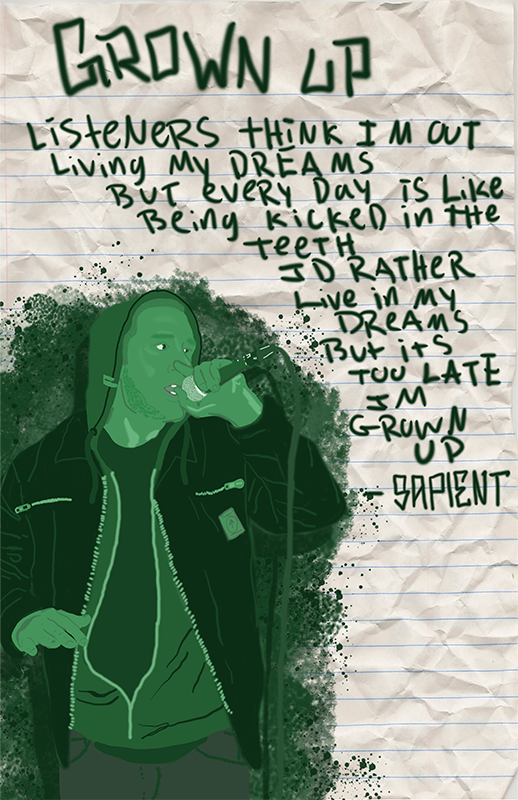 GROWN UP
LiSteNERS tHiNK I M OUT
Living My DREAMS
BUT eveRy Day iS LiKe
Being KicKeD in tHe
teetH
I D RATHeR
Live in My
DReAMS
But itS
TOO LATE
I M
GROWN
UP
- SAPIENT